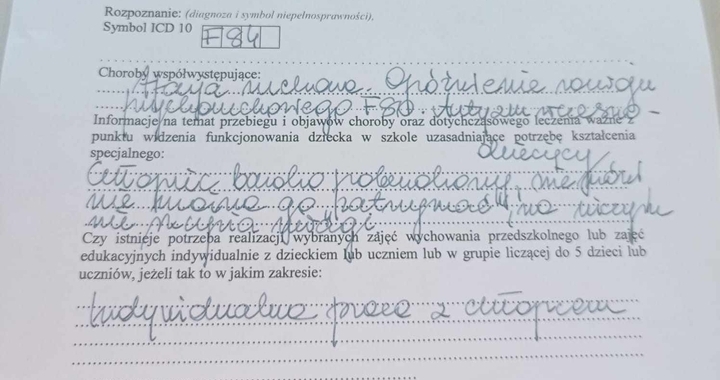 Rozpoznanie: (diagnoza i symbol niepełnosprawności),
Symbol ICD 10 F84
Choroby współwystępujące:
ruchowa. Opóźnienie rozwoju
psychoruchowego F80. Autyzm wczesno-
Informacje na temat przebiegu i objawów choroby oraz dotychczasowego leczenia ważne z
punktu widzenia funkcjonowania dziecka w szkole uzasadniające potrzebę kształcenia
specjalnego:
dziecięcy
Chłopiec bardzo pobudzony, nie mówi
nie można go zatrzymać,
nie skupia uwagi.
Czy istnieje potrzeba realizacji wybranych zajęć wychowania przedszkolnego lub zajęć
edukacyjnych indywidualnie z dzieckiem lub uczniem lub w grupie liczącej do 5 dzieci lub
uczniów, jeżeli tak to w jakim zakresie:
Indywidualna praca z chłopcem